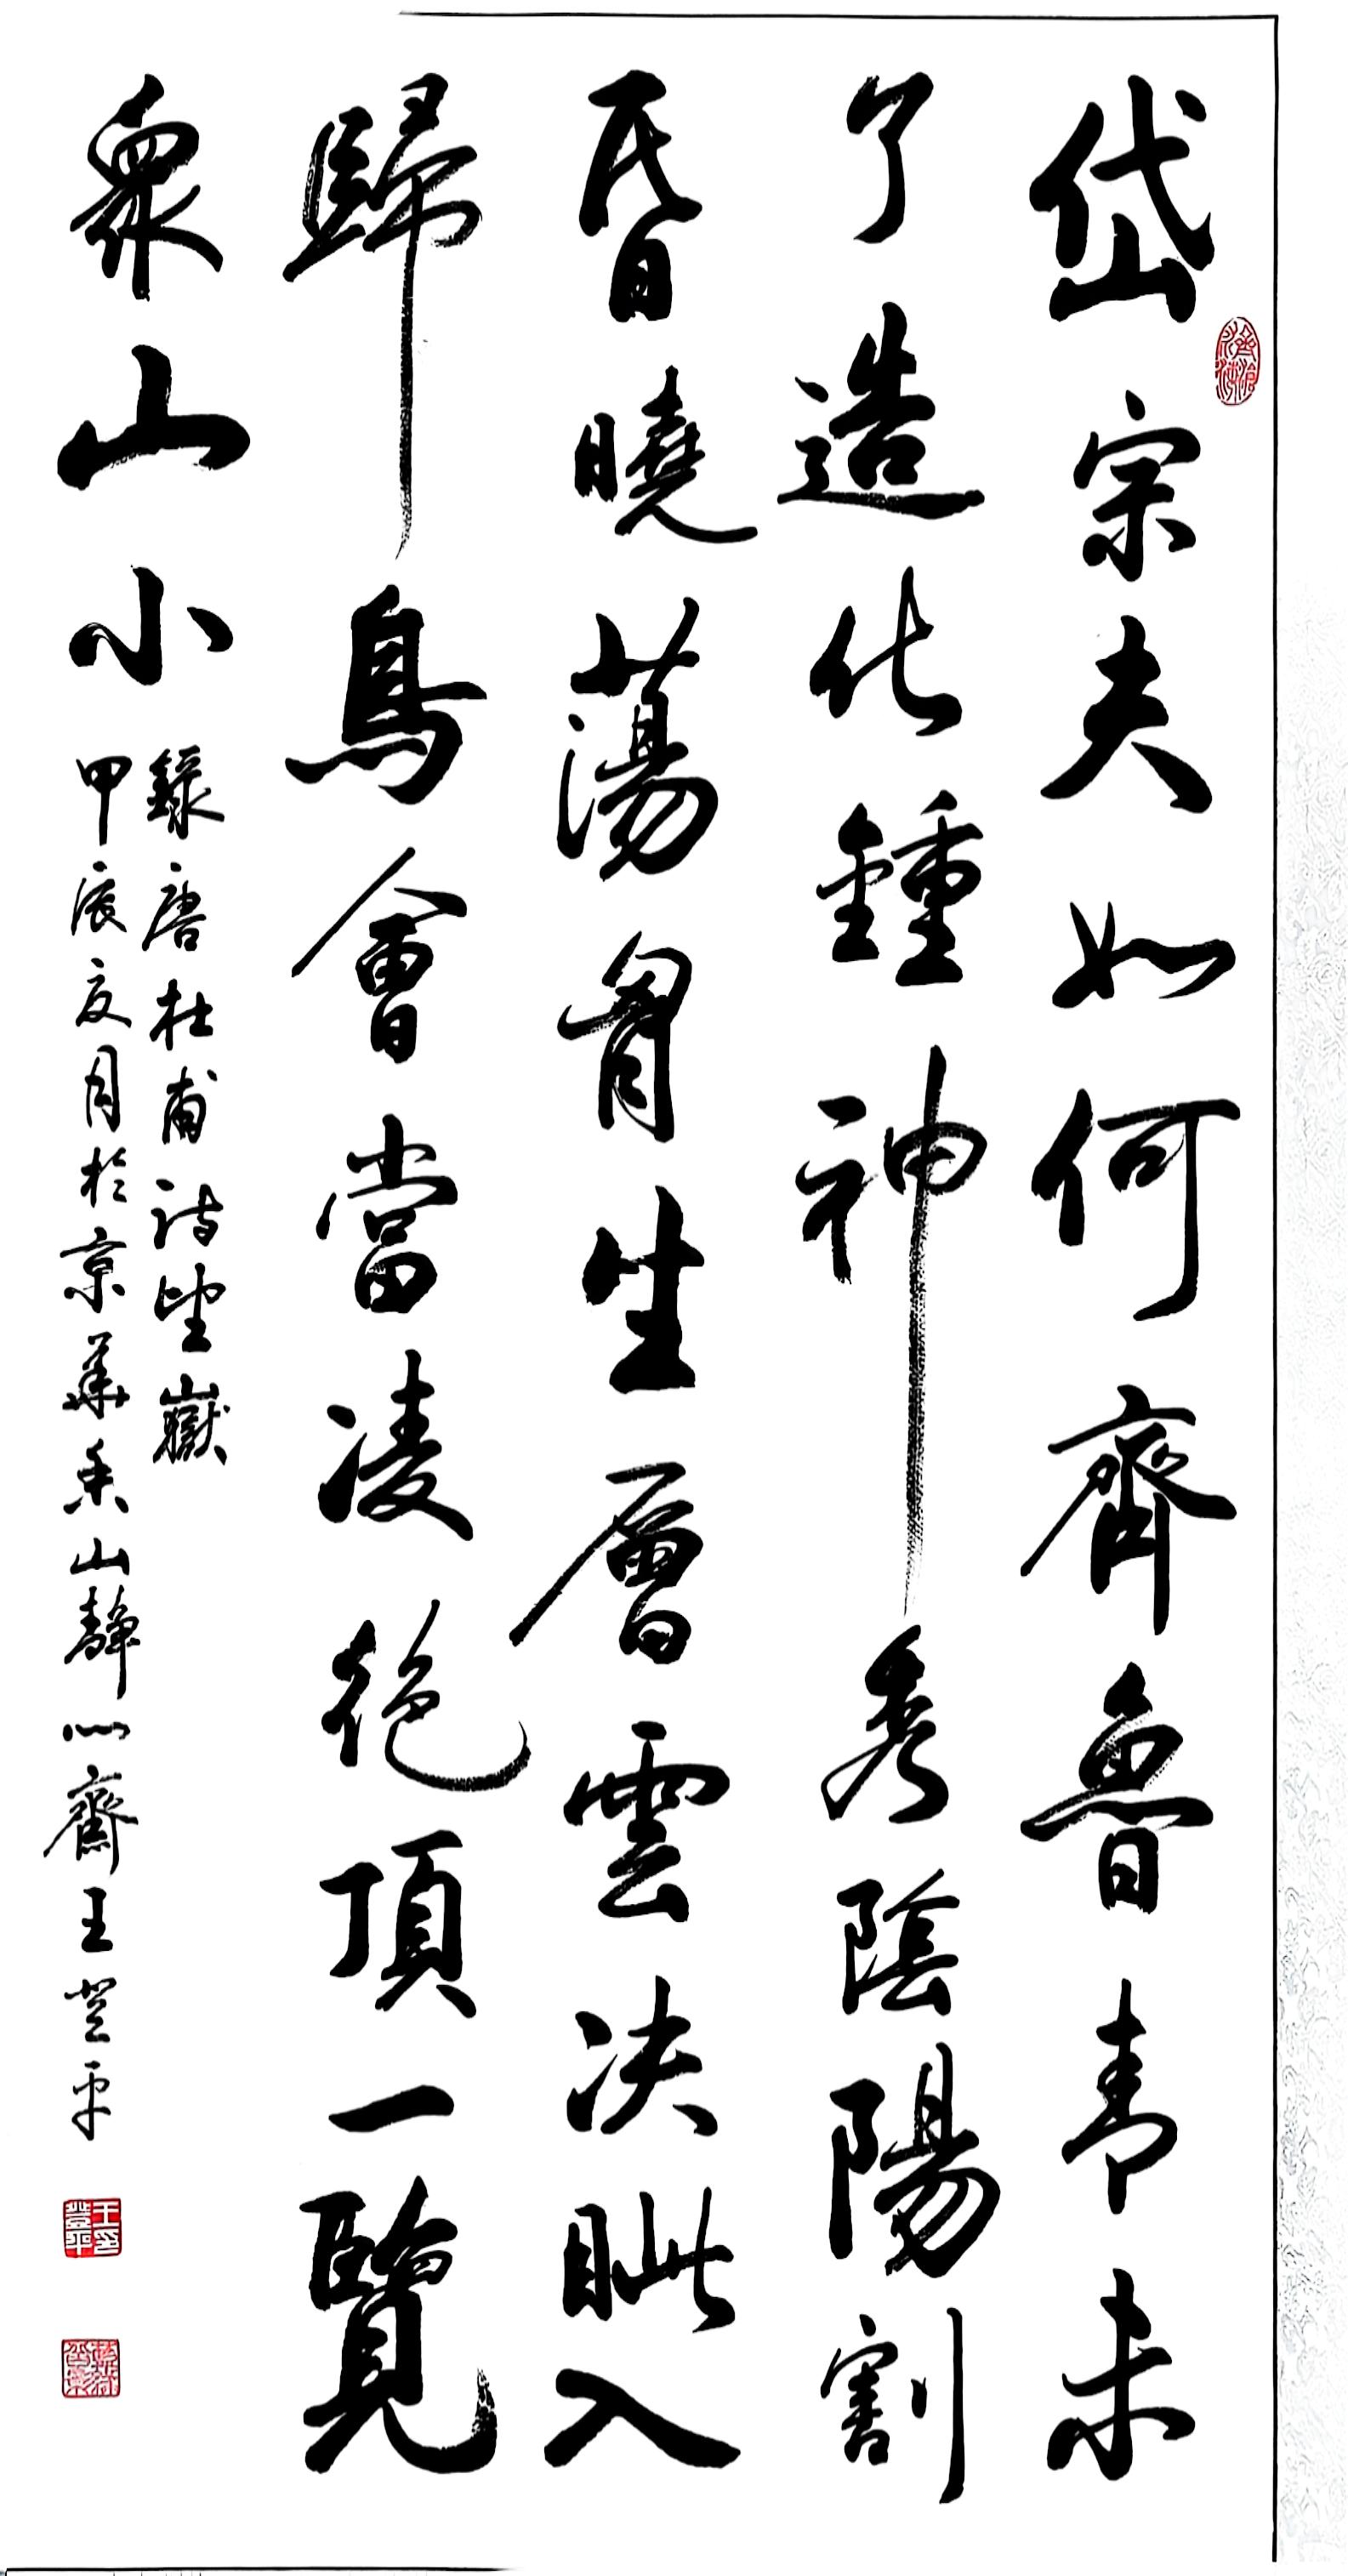 岱宗夫如何齊魯青未
了造化鍾神秀陰陽割
昏曉蕩胷生層雲决眦入
歸鳥會當凌絶頂一覽
衆山小
録唐杜甫詩望嶽
甲辰夏月於京華香山靜心齋王登平
王登平印